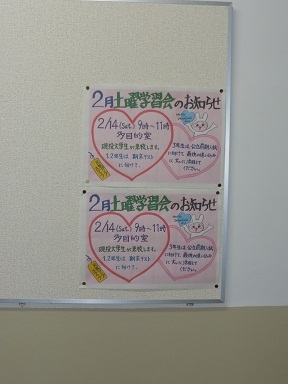 2月土曜学習会のお知らせ
2/14(Sat.) 9時~11時
多目的室
現役大学生が来校します。
1.2年生は、期末テスト
に向けて、
3年生は、公立前期入試
に向けて、最後の追い込み
に大いに活用して
ください。
2月土曜学習会のお知らせ
2/14(Sat.) 9時~11時
多目的室
現役大学生が来校します。
1.2年生は、期末テスト
に向けて、
3年生は、公立前期入試
に向けて、最後の追い込み
に大いに活用して
ください。